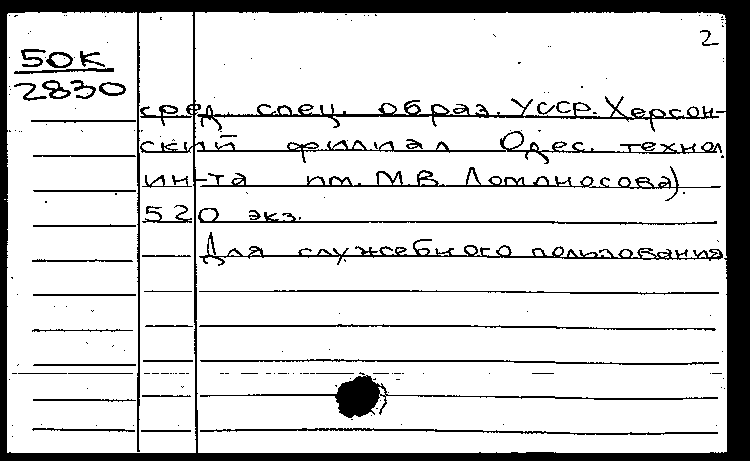 2
50К
2830
сред. спец. образ. УССР. Херсон-
ский филиал Одес. технол.
ин-та им. М.В. Ломоносова).
520 экз.
Для служебного пользования